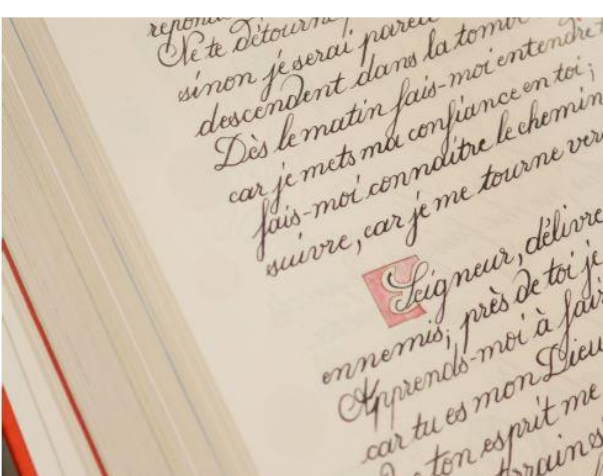 Ne te détourne
sinon je serai pareil
descendent dans la tombe
Dès le matin fais-moi entendre t
car je mets ma confiance en toi;
fais-moi connaître le chemin
suivre, car je me tourne ver
Seigneur, délivre
ennemis; près de toi je
Apprends-moi à fair
car tu es mon Dieu
ton esprit me